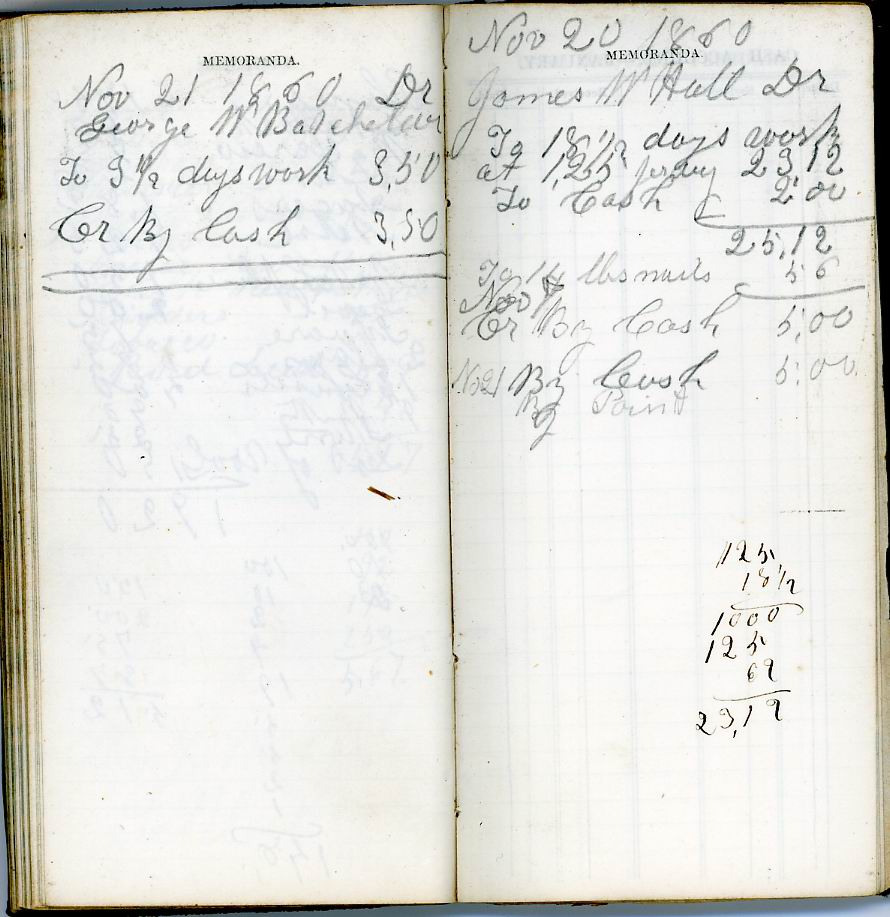 MEMORANDA.
Nov 21 1860 Dr
George W Batchelder
To 3 1/2 days work 3,50
Cr By Cash 3,50
Nov 20 1860
MEMORANDA.
James W Hall Dr
To 18 1/2 days work
at 1,25 pr day 23 12
To Cash 2 00
25,12
To 14 lbs nails 56
Nov
Cr By Cash 5,00
No 21 By Cash 5,00
By Paint
125
18 1/2
1000
125
62
23,12